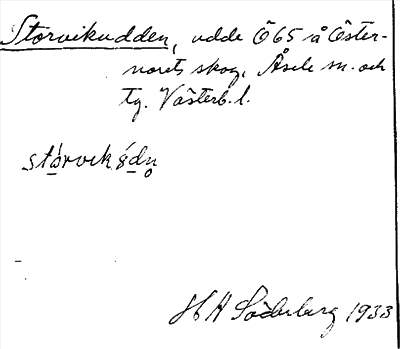 Storvikudden, udde Ö 65 å Öster-
norets skog, Åsele sn. och
tg. Västerb. l.
stórvik
H A Söderberg 1933